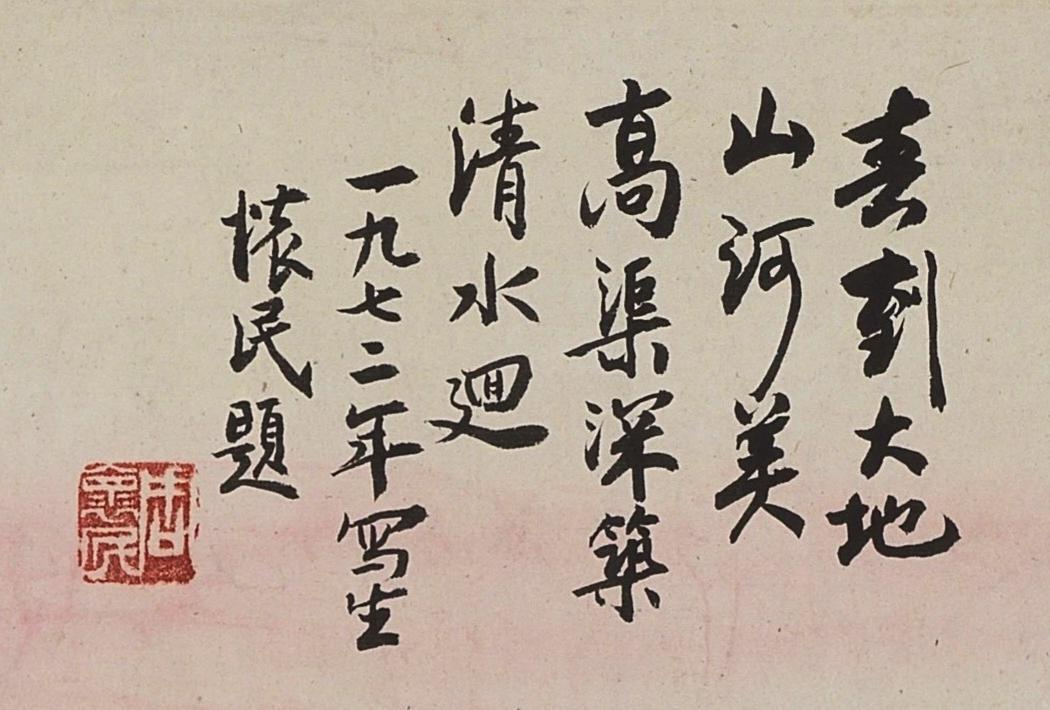 春到大地
山河美
高渠深築
清水迴
一九七二年写生
懷民題
周懷民